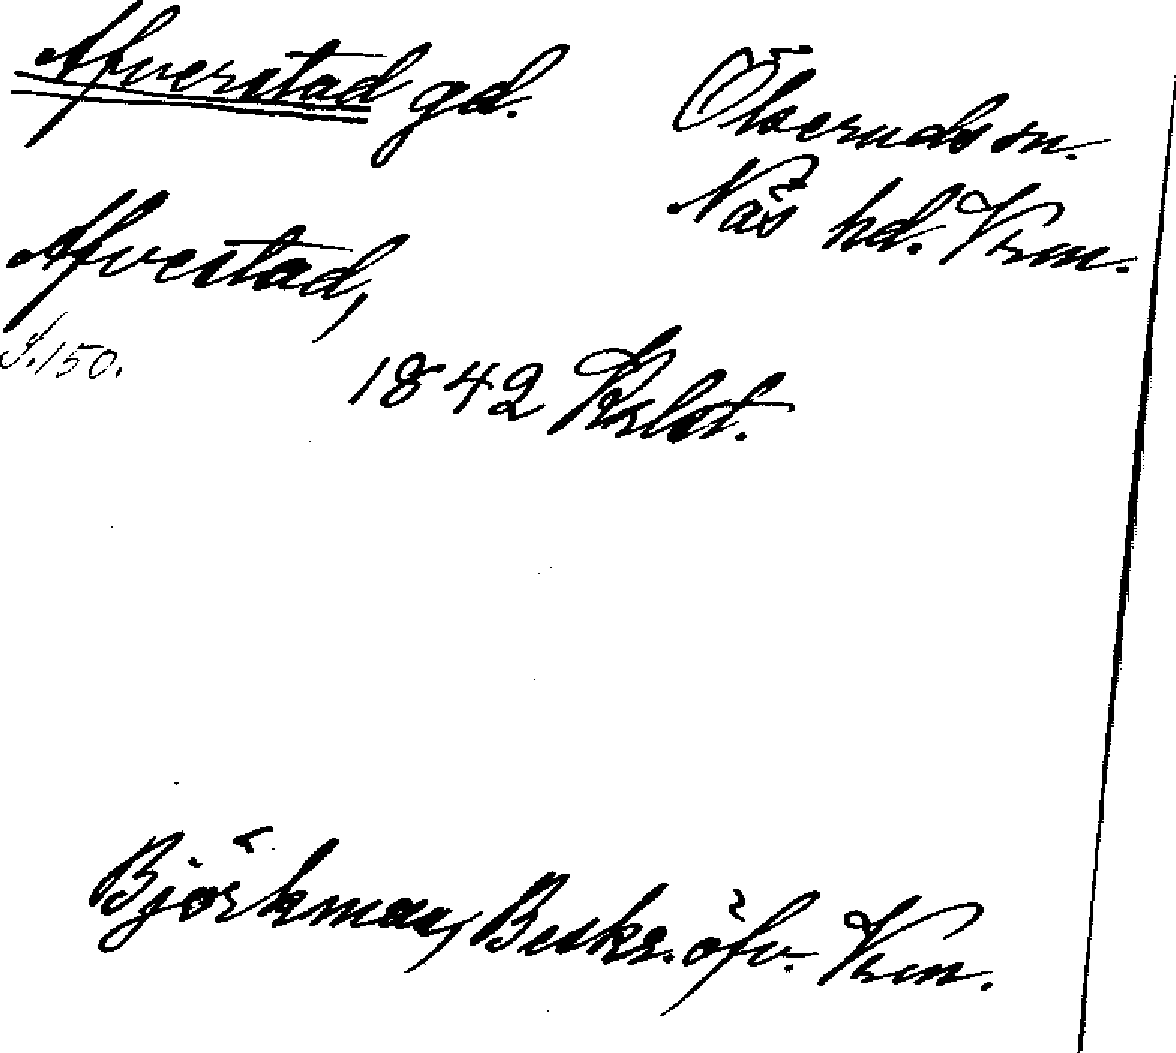 Afverstad gd.
Ölseruds sn.
Näs hd. Vrm.
Afvestad,
S. 150.
1842 Krlst.
Björkman, Beskr. öfv. Vrm.